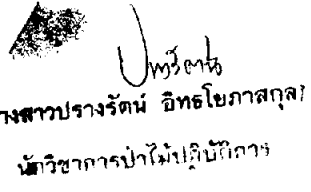 างสาวปรางรัตน์ อิทธโยภาสกุล
นักวิชาการป่าไม้ปฏิบัติการ